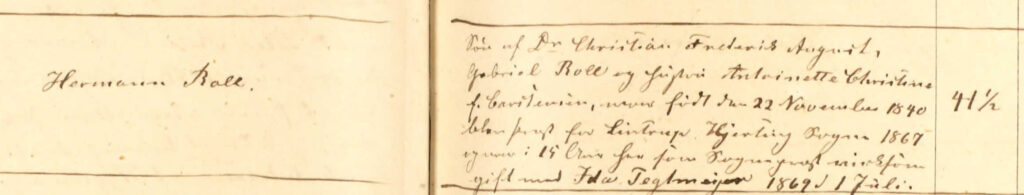 Hermann Roll.
Søn af Dr Christian Frederik August,
Gabriel Roll og Hustru Antoinette Christine
f. Carstensen, var født den 22 November 1840
blev Præst for Lintrup, Hjerting Sogne 1867
og var i 15 Aar her som Sognepræst virksom
gift med Ida Tegtmeijer 1869 d 1 Juli.
41 1/2